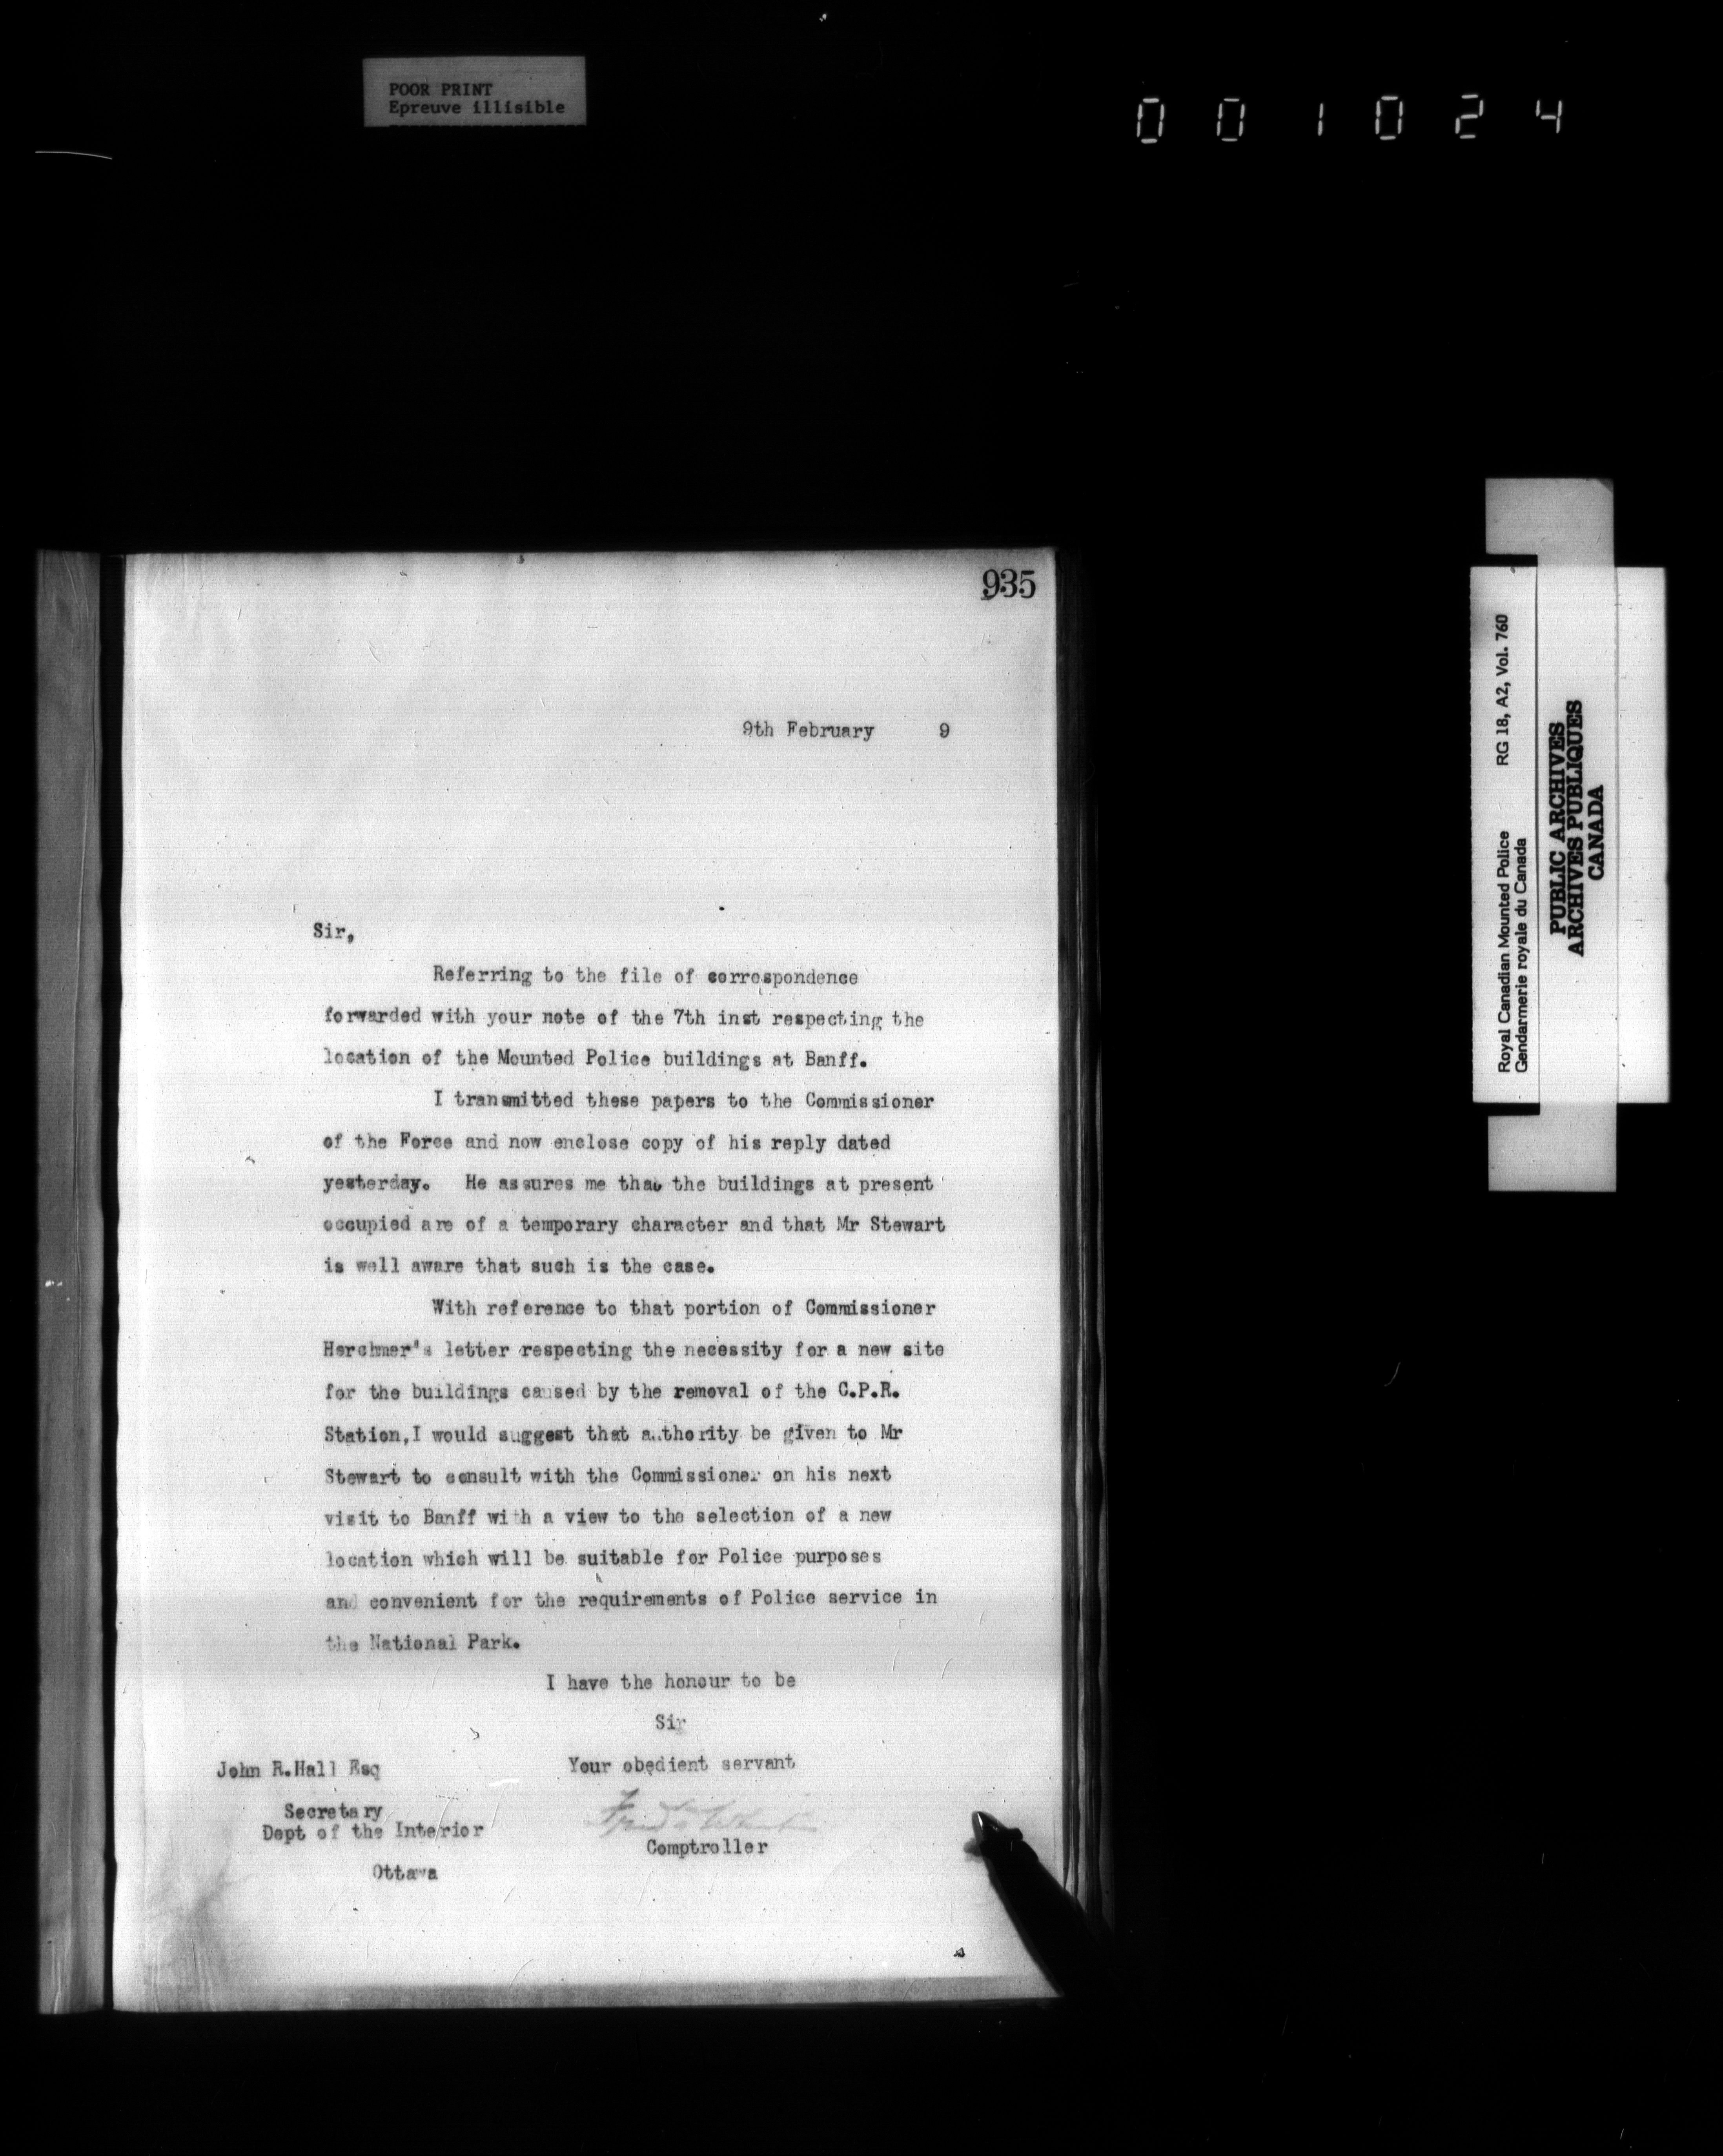 POOR PRINT
Epreuve illisible
001024
935
9th February 9
Sir,
Referring to the file of correspondence
forwarded with your note of the 7th inst respecting the
location of the Mounted Police buildings at Banff.
I transmitted these papers to the Commissioner
of the Force and now enclose copy of his reply dated
yesterday. He assures me that the buildings at present
occupied are of a temporary character and that Mr Stewart
is well aware that such is the case.
With reference to that portion of Commissioner
Herchmer's letter respecting the necessity for a new site
for the buildings caused by the removal of the C.P.R.
Station,I would suggest that authority be given to Mr
Stewart to consult with the Commissioner on his next
visit to Banff with a view to the selection of a new
location which will be suitable for Police purposes
and convenient for the requirements of Police service in
the National Park.
I have the honour to be
Sir
Your obedient servant
Fred White
Comptroller
John R.Hall Esq
Secretary
Dept of the Interior
Ottawa
Royal Canadian Mounted Police RG 18, A2, Vol. 760
Gendarmerie royale du Canada
PUBLIC ARCHIVES
ARCHIVES PUBLIQUES
CANADA